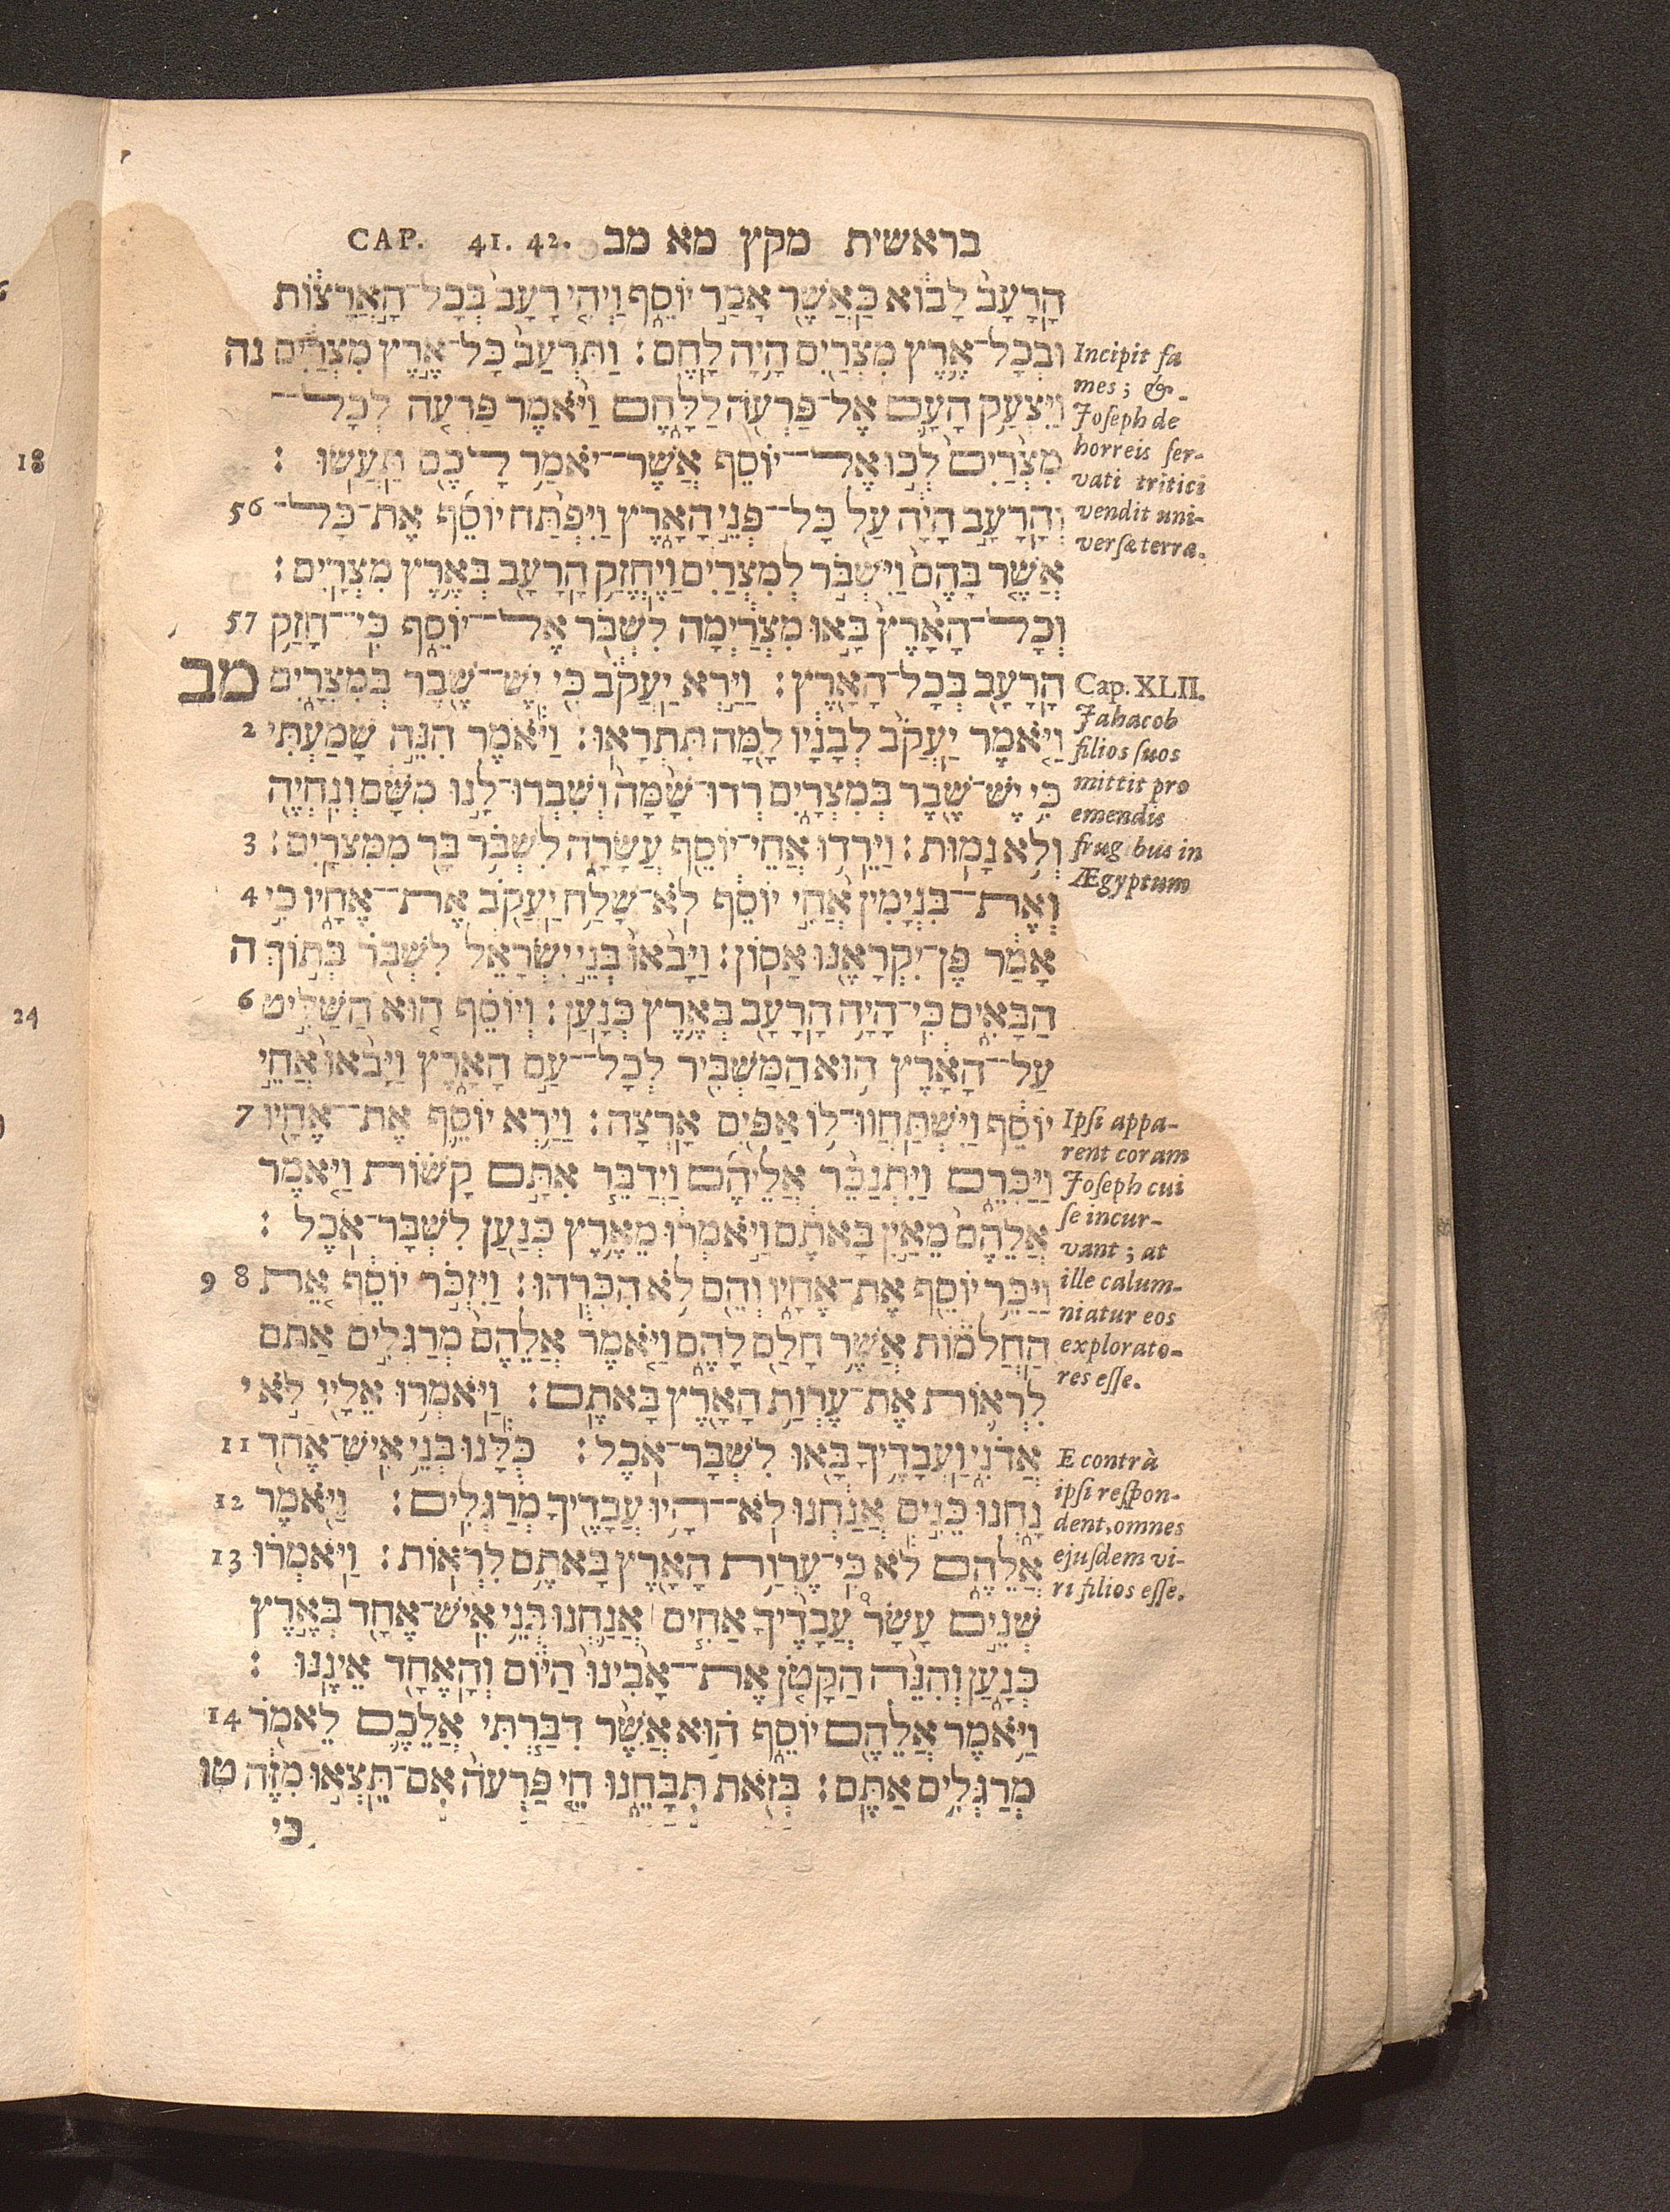 CAP. 41. 42. בראשית מקץ מא מב
הָרָעָב לָבוֹא כַּאֲשֶׁר אָמַר יוֹסֵף וַיְהִי רָעָב בְּכָל־הָאֲרָצוֹת
וּבְכָל־אֶרֶץ מִצְרַיִם הָיָה לָחֶם׃ וַתִּרְעַב כָּל־אֶרֶץ מִצְרַיִם נה
וַיִּצְעַק הָעָם אֶל־פַּרְעֹה לַלָּחֶם וַיֹּאמֶר פַּרְעֹה לְכָל־
מִצְרַיִם לְכוּ אֶל־יוֹסֵף אֲשֶׁר־יֹאמַר לָכֶם תַּעֲשׂוּ׃
וְהָרָעָב הָיָה עַל כָּל־פְּנֵי הָאָרֶץ וַיִּפְתַּח יוֹסֵף אֶת־כָּל־ 56
אֲשֶׁר בָּהֶם וַיִּשְׁבֹּר לְמִצְרַיִם וַיֶּחֱזַק הָרָעָב בְּאֶרֶץ מִצְרָיִם׃
וְכָל־הָאָרֶץ בָּאוּ מִצְרַיְמָה לִשְׁבֹּר אֶל־יוֹסֵף כִּי־חָזַק 57
הָרָעָב בְּכָל־הָאָרֶץ׃ וַיַּרְא יַעֲקֹב כִּי יֶשׁ־שֶׁבֶר בְּמִצְרָיִם מב
וַיֹּאמֶר יַעֲקֹב לְבָנָיו לָמָּה תִּתְרָאוּ׃ וַיֹּאמֶר הִנֵּה שָׁמַעְתִּי 2
כִּי יֶשׁ־שֶׁבֶר בְּמִצְרָיִם רְדוּ־שָׁמָּה וְשִׁבְרוּ־לָנוּ מִשָּׁם וְנִחְיֶה
וְלֹא נָמוּת׃ וַיֵּרְדוּ אֲחֵי־יוֹסֵף עֲשָׂרָה לִשְׁבֹּר בָּר מִמִּצְרָיִם׃ 3
וְאֶת־בִּנְיָמִין אֲחִי יוֹסֵף לֹא־שָׁלַח יַעֲקֹב אֶת־אֶחָיו כִּי 4
אָמַר פֶּן־יִקְרָאֶנּוּ אָסוֹן׃ וַיָּבֹאוּ בְּנֵי יִשְׂרָאֵל לִשְׁבֹּר בְּתוֹךְ ה
הַבָּאִים כִּי־הָיָה הָרָעָב בְּאֶרֶץ כְּנָעַן׃ וְיוֹסֵף הוּא הַשַּׁלִּיט 6
עַל־הָאָרֶץ הוּא הַמַּשְׁבִּיר לְכָל־עַם הָאָרֶץ וַיָּבֹאוּ אֲחֵי
יוֹסֵף וַיִּשְׁתַּחֲווּ־לוֹ אַפַּיִם אָרְצָה׃ וַיַּרְא יוֹסֵף אֶת־אֶחָיו 7
וַיַּכִּרֵם וַיִּתְנַכֵּר אֲלֵיהֶם וַיְדַבֵּר אִתָּם קָשׁוֹת וַיֹּאמֶר
אֲלֵהֶם מֵאַיִן בָּאתֶם וַיֹּאמְרוּ מֵאֶרֶץ כְּנַעַן לִשְׁבָּר־אֹכֶל׃
וַיַּכֵּר יוֹסֵף אֶת־אֶחָיו וְהֵם לֹא הִכִּרֻהוּ׃ וַיִּזְכֹּר יוֹסֵף אֵת 8 9
הַחֲלֹמוֹת אֲשֶׁר חָלַם לָהֶם וַיֹּאמֶר אֲלֵהֶם מְרַגְּלִים אַתֶּם
לִרְאוֹת אֶת־עֶרְוַת הָאָרֶץ בָּאתֶם׃ וַיֹּאמְרוּ אֵלָיו לֹא י
אֲדֹנִי וַעֲבָדֶיךָ בָּאוּ לִשְׁבָּר־אֹכֶל׃ כֻּלָּנוּ בְּנֵי אִישׁ־אֶחָד 11
נָחְנוּ כֵּנִים אֲנַחְנוּ לֹא־הָיוּ עֲבָדֶיךָ מְרַגְּלִים׃ וַיֹּאמֶר 12
אֲלֵהֶם לֹא כִּי־עֶרְוַת הָאָרֶץ בָּאתֶם לִרְאוֹת׃ וַיֹּאמְרוּ 13
שְׁנֵים עָשָׂר עֲבָדֶיךָ אַחִים אֲנַחְנוּ בְּנֵי אִישׁ־אֶחָד בְּאֶרֶץ
כְּנָעַן וְהִנֵּה הַקָּטֹן אֶת־אָבִינוּ הַיּוֹם וְהָאֶחָד אֵינֶנּוּ׃
וַיֹּאמֶר אֲלֵהֶם יוֹסֵף הוּא אֲשֶׁר דִּבַּרְתִּי אֲלֵכֶם לֵאמֹר 14
מְרַגְּלִים אַתֶּם׃ בְּזֹאת תִּבָּחֵנוּ חֵי פַרְעֹה אִם־תֵּצְאוּ מִזֶּה טו
כי
Incipit fa
mes; &
Joseph de
horreis ser-
vati tritici
vendit uni-
versæ terræ.
Cap. XLII.
Jahacob
filios suos
mittit pro
emendis
frug bus in
Ægyptum
Ipsi appa-
rent coram
Joseph cui
se incur-
vant; at
ille calum-
niatur eos
explorato-
res esse.
E contrà
ipsi respon-
dent, omnes
ejusdem vi-
ri filios esse.
18
24